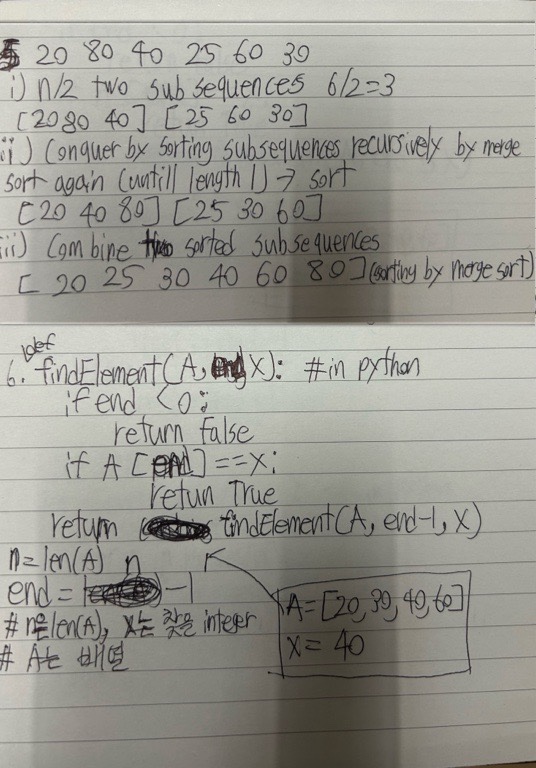 5 20 80 40 25 60 30
i) n/2 two sub sequences 6/2=3
[20 80 40] [25 60 30]
ii) Conquer by sorting subsequences recursively by merge
sort again (untill length 1) → sort
[20 40 80] [25 30 60]
iii) Combine two sorted subsequences
[ 20 25 30 40 60 80] (sorting by merge sort)
def
6. findElement(A, end, X): #in python
if end <0:
return False
if A [end] ==X:
retun True
return findElement(A, end-1, X)
n=len(A)
end = n -1
A=[20,30,40,60]
X= 40
# n은 len(A), X는 찾을 integer
# A는 배열